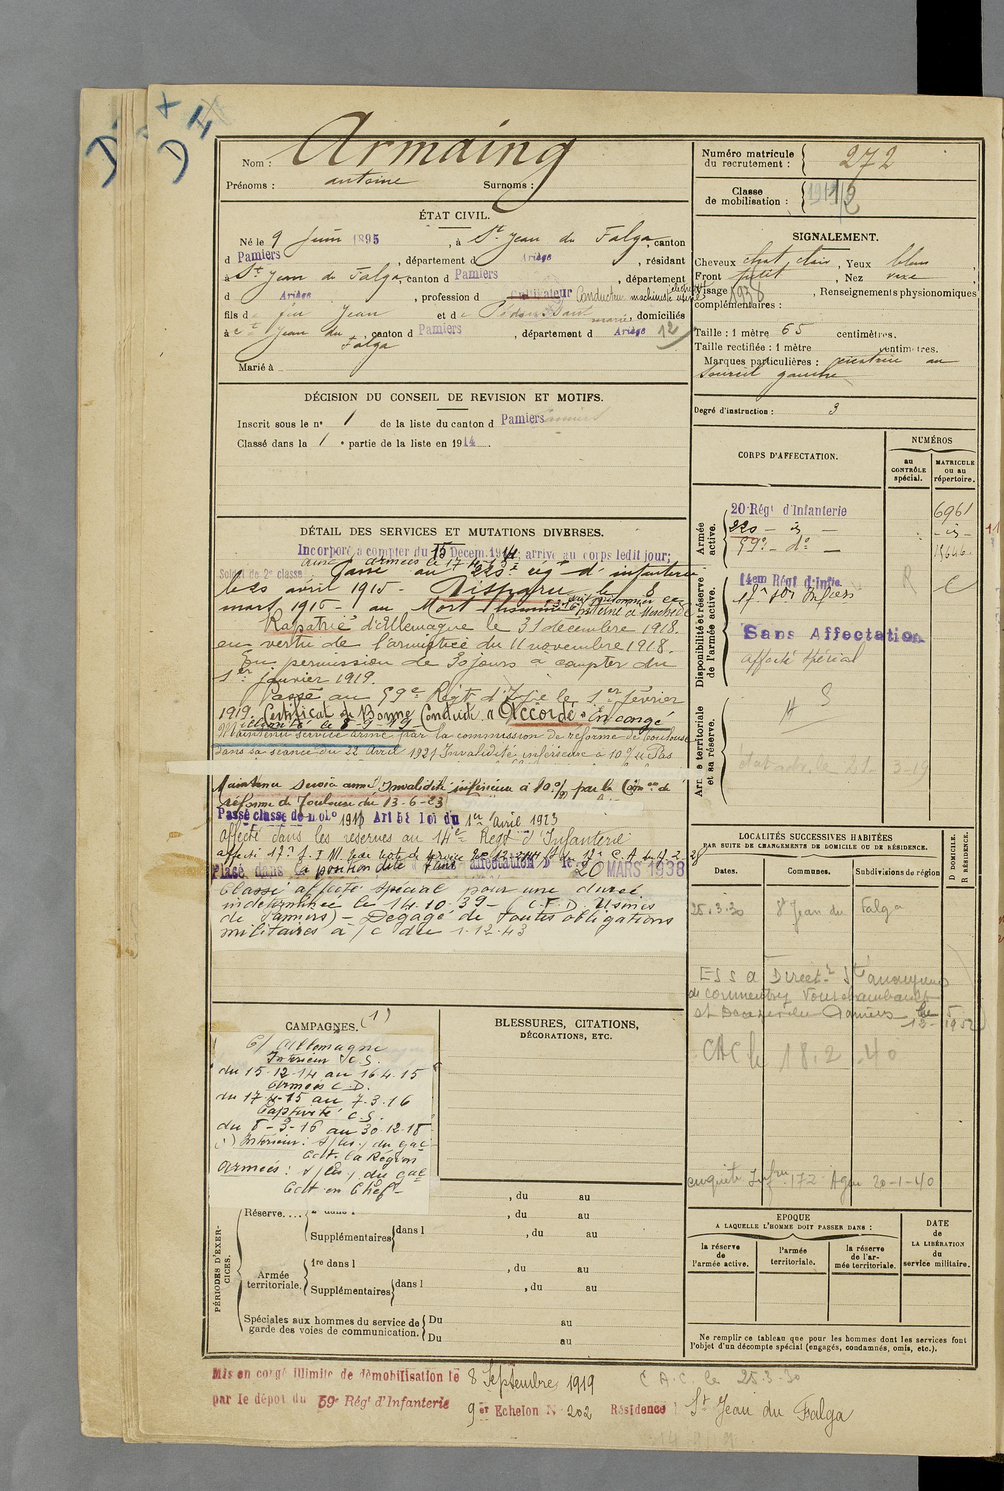 Nom : Armaing
Prénoms : antoine Surnoms :
ÉTAT CIVIL.
Né le 9 Juin 1895, à St Jean du Falga, canton
d Pamiers, département d Ariège, résidant
à St Jean du Falga, canton d Pamiers, département
d Ariège, profession d Cultivateur Conducteur machiniste
fils de feu Jean et de marie, domiciliés
à St Jean du Falga, canton d Pamiers, département d Ariège 12
Marié à
DÉCISION DU CONSEIL DE REVISION ET MOTIFS.
Inscrit sous le n° 1 de la liste du canton d Pamiers
Classé dans la 1e partie de la liste en 1914.
DÉTAIL DES SERVICES ET MUTATIONS DIVERSES.
Incorporé à compter du 15 Décem. 1914, arrivé au corps ledit jour;
Soldat de 2e classe. aux armées le 17 4 Passé au 220e rég t d' infanterie
le 20 avril 1915 - Disparu le 8
mars 1916 - au Mort Homme
Rapatrié d'Allemagne le 31 décembre 1918.
en vertu de l'armistice du 11 novembre 1918.
En permission de 30 jours à compter du
1er janvier 1919.
Passé au 59e Régt d'Infie le 1er février
1919. Certificat de Bonne Conduite "Accordé" En congé
illimité le 8-9-19
Maintenu service armé par la commission de réforme de Toulouse
dans sa séance du 22 Avril 1921 Invalidité inférieure à 10% Pas
Maintenu service armé Invalidité inférieure à 10% par la Con on de
réforme de Toulouse du 13-6-23
Passé classe de mob° 1913 Art 58 loi du 1er Avril 1923
affecté dans les réserves au 14e Régt d'Infanterie
Placé dans la position dite Sans affectation D le 20 MARS 1938
Classé affecté spécial pour une durée
indéterminée le 14.10.39 - (C.F.D. Usines
de Pamiers) - Dégagé de toutes obligations
militaires à /c du 1.12.43
CAMPAGNES. (1)
C/ Allemagne
Intérieur C.S.
du 15-12-14 au 16 4.15
Armées C.D.
du 17-4-15 au 7.3.16
Captivité C.S.
du 8-3-16 au 30.12.18
(1) Intérieur : s/les/ du gal
Cdt. la Région
armées : s/les/ du gal
Cdt en Chef
BLESSURES, CITATIONS,
DÉCORATIONS, ETC.
PÉRIODES D'EXERCICES.
, du au
Réserve.... , du au
Supplémentaires dans l , du au
Armée territoriale. 1re dans l , du au
Supplémentaires dans l , du au
Spéciales aux hommes du service de garde des voies de communication. Du au
Du au
Mis en congé illimité de démobilisation le 8 Septembre 1919
par le dépôt du 59e Régt d'Infanterie
9er Echelon N° 202 Résidence : St Jean du Falga
C.A.C. le 25.3.30
Numéro matricule
du recrutement : 272
Classe
de mobilisation : 12
SIGNALEMENT.
Cheveux chat clair, Yeux bleu
Front fuyt, Nez vexe
Visage, Renseignements physionomiques
complémentaires :
Taille : 1 mètre 65 centimètres.
Taille rectifiée : 1 mètre centimètres.
Marques particulières : cicatrice au
sourcil gauche
Degré d'instruction : 3
CORPS D'AFFECTATION.
NUMÉROS
au CONTRÔLE spécial.
MATRICULE ou au répertoire.
Armée active.
20e Régt d'Infanterie 6961
220 - is - - is -
59e - do -
Disponibilité et réserve de l'armée active.
14em Régt d'Infie.
Sans Affectation
affecté spécial
Armée territoriale et sa réserve.
LOCALITÉS SUCCESSIVES HABITÉES
PAR SUITE DE CHANGEMENTS DE DOMICILE OU DE RÉSIDENCE.
Dates. Communes. Subdivisions de région
D DOMICILE. R RÉSIDENCE.
25.3.30 St Jean du Falga
CAC le 18.2.40
enquête 172 Agen 20-1-40
EPOQUE
A LAQUELLE L'HOMME DOIT PASSER DANS :
la réserve de l'armée active.
l'armée territoriale.
la réserve de l'armée territoriale.
DATE
de
LA LIBÉRATION
du
service militaire.
Ne remplir ce tableau que pour les hommes dont les services font
l'objet d'un décompte spécial (engagés, condamnés, omis, etc.).